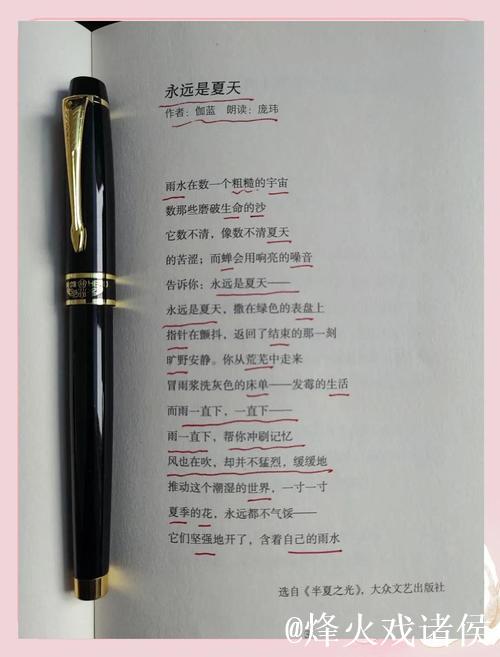 永远是夏天
作者：伽蓝 朗读：庞玮
雨水在数一个粗糙的宇宙
数那些磨破生命的沙
它数不清，像数不清夏天
的苦涩；而蝉会用响亮的噪音
告诉你：永远是夏天——
永远是夏天，撒在绿色的表盘上
指针在颤抖，返回了结束的那一刻
旷野安静。你从荒芜中走来
冒雨浆洗灰色的床单——发霉的生活
而雨一直下，一直下——
雨一直下，帮你冲刷记忆
风也在吹，却并不猛烈，缓缓地
推动这个潮湿的世界，一寸一寸
夏季的花，永远都不气馁——
它们坚强地开了，含着自己的雨水
选自《半夏之光》，大众文艺出版社
@烽火戏诸侯